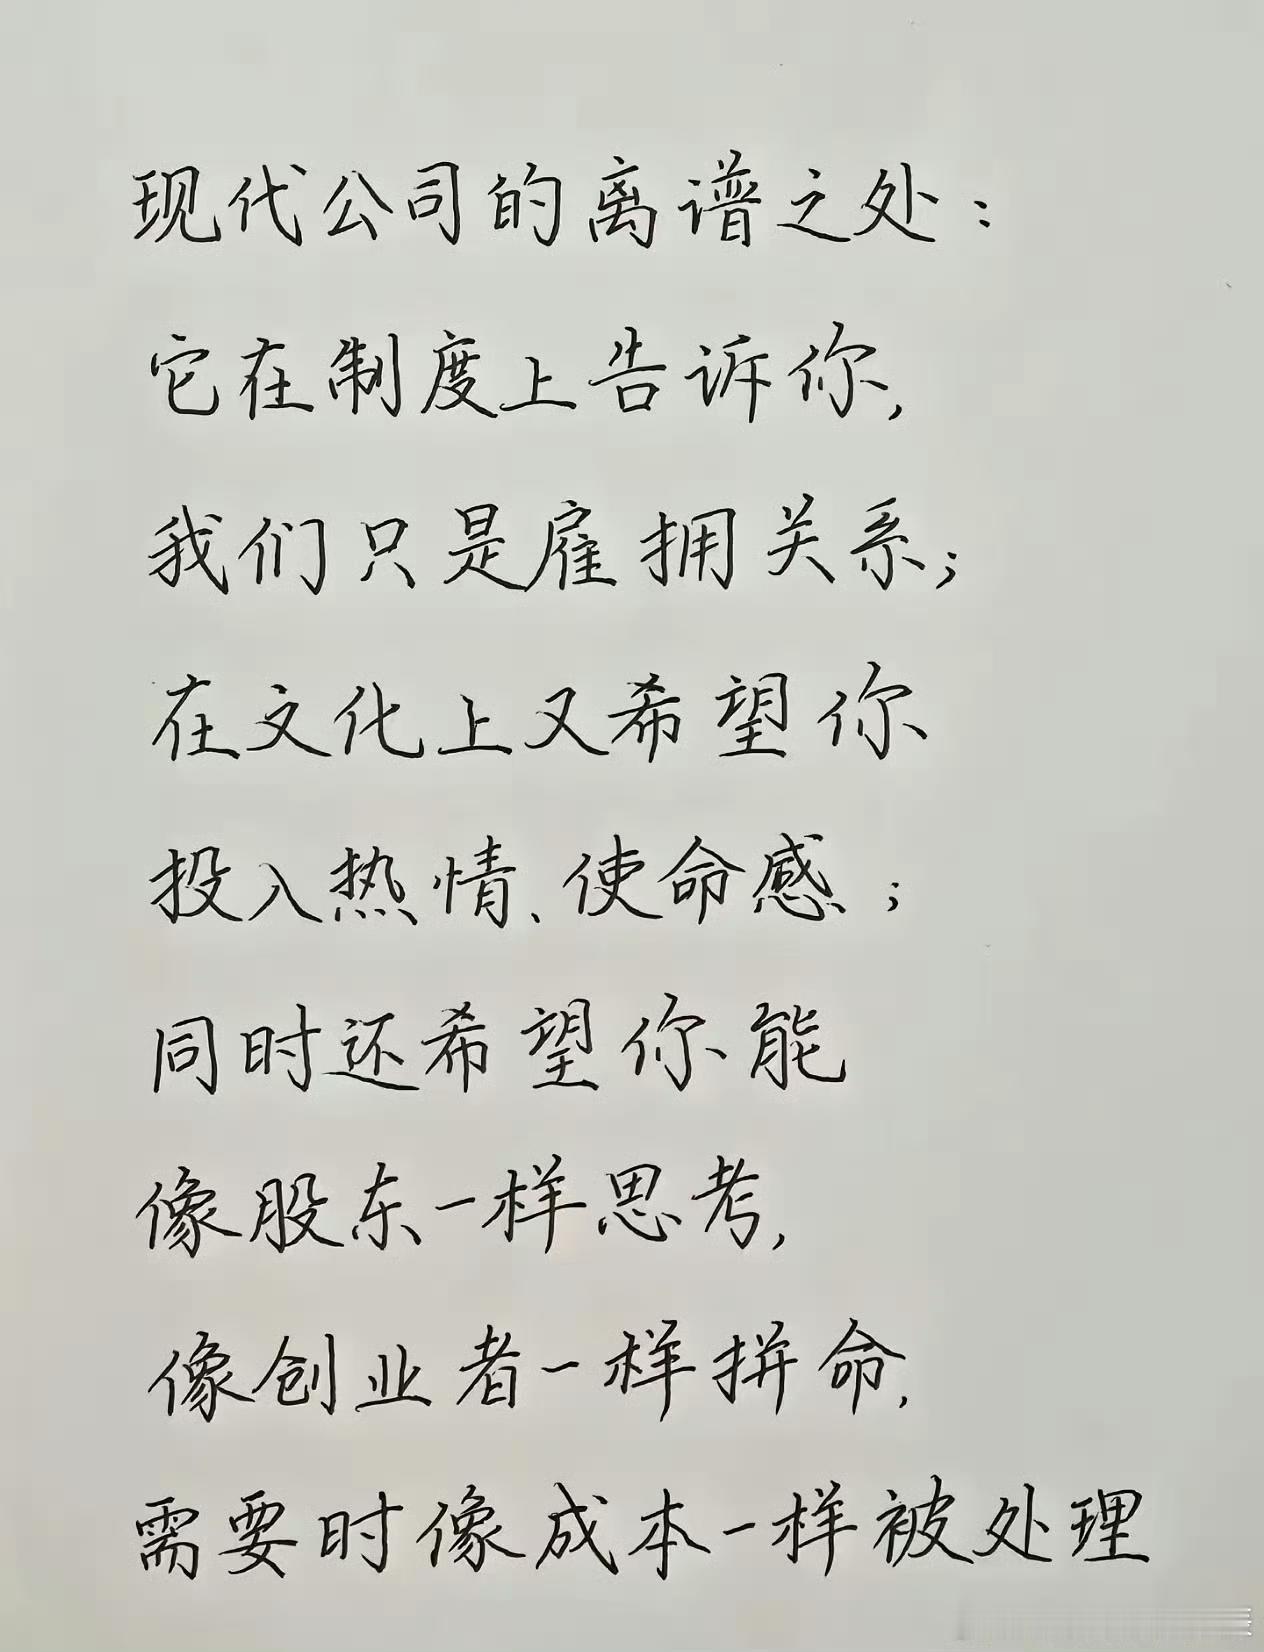 现代公司的离谱之处：
它在制度上告诉你，
我们只是雇拥关系；
在文化上又希望你
投入热情、使命感；
同时还希望你能
像股东一样思考，
像创业者一样拼命，
需要时像成本一样被处理